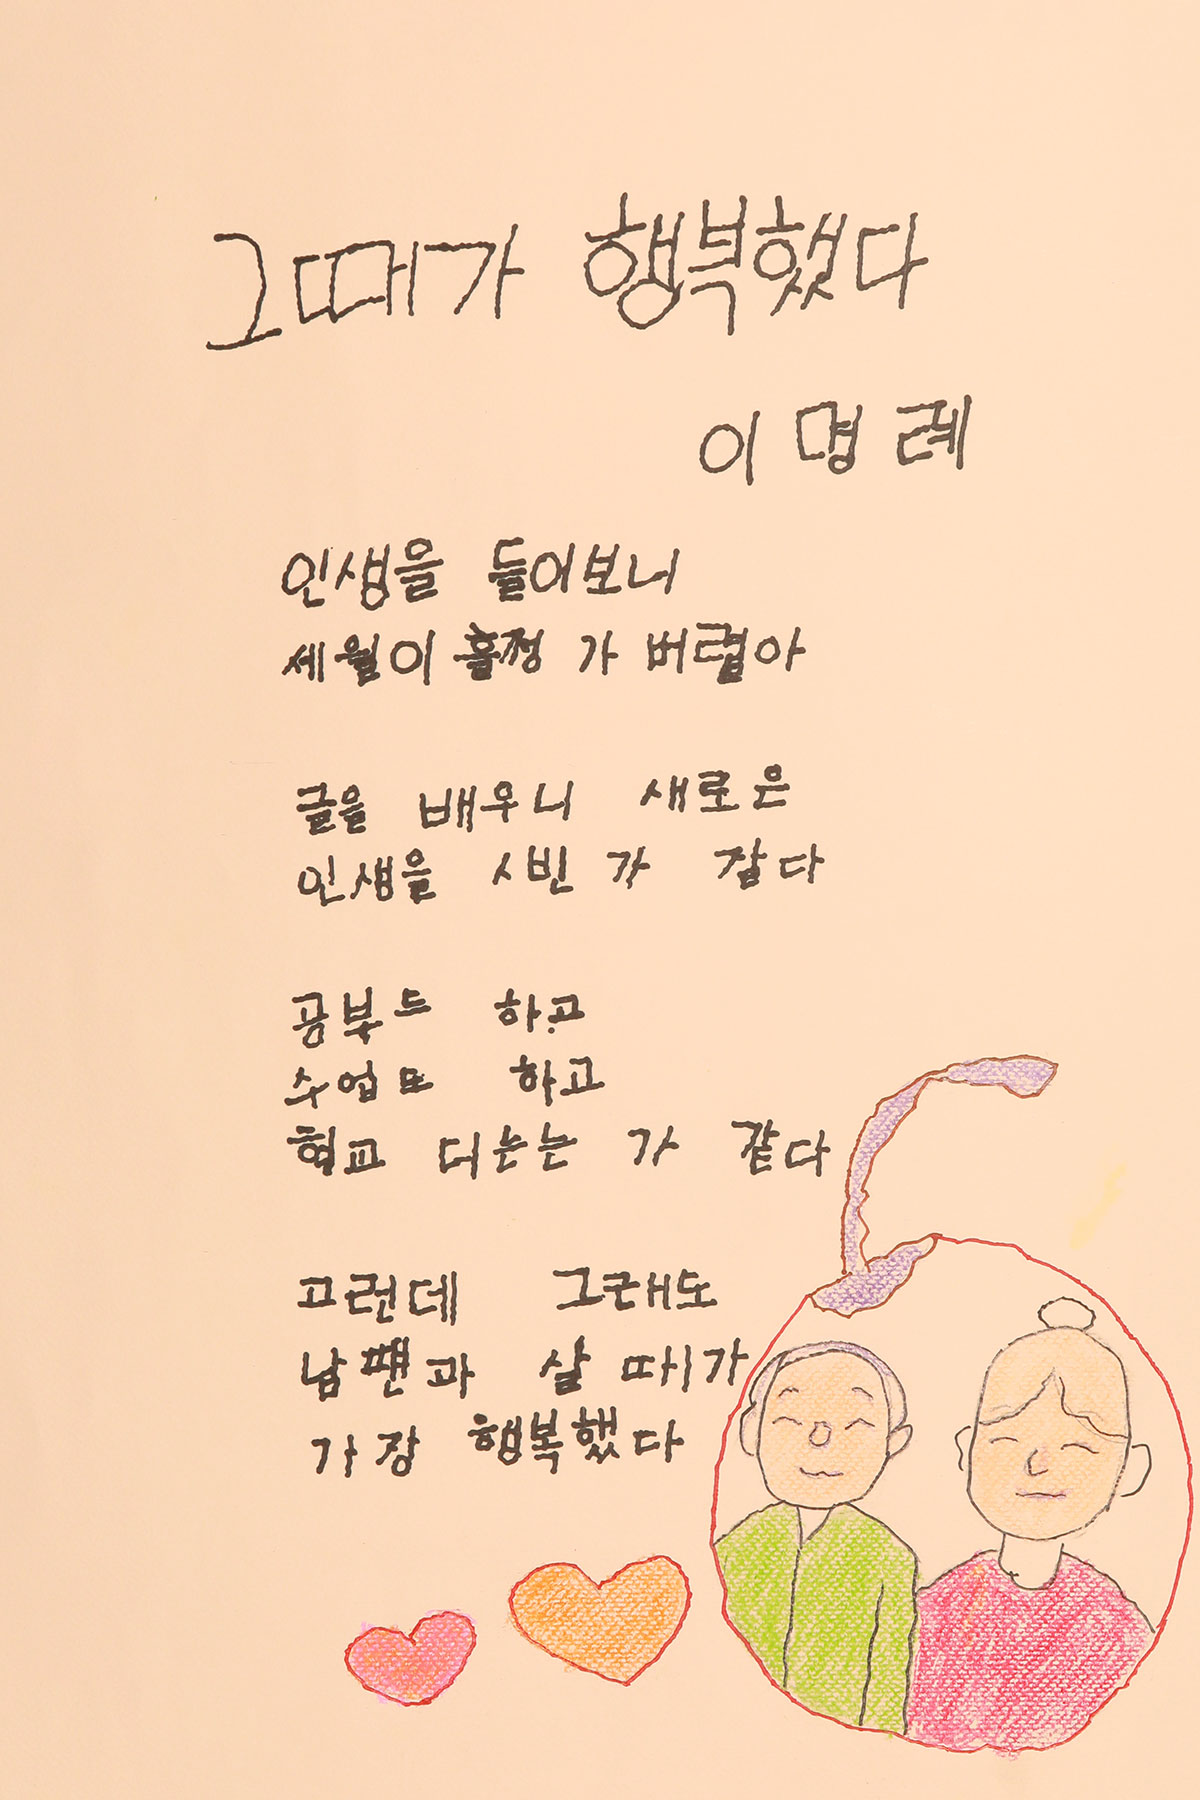 그때가 행복했다
이명례
인생을 들어보니
세월이 훌쩡 가 버렵아
글을 배우니 새로은
인생을 시빈 가 잘다
공부드 하고
수업또 하고
혁교 디는는 가 같다
고런데 그근대도
남편과 살 때가
가장 행복했다